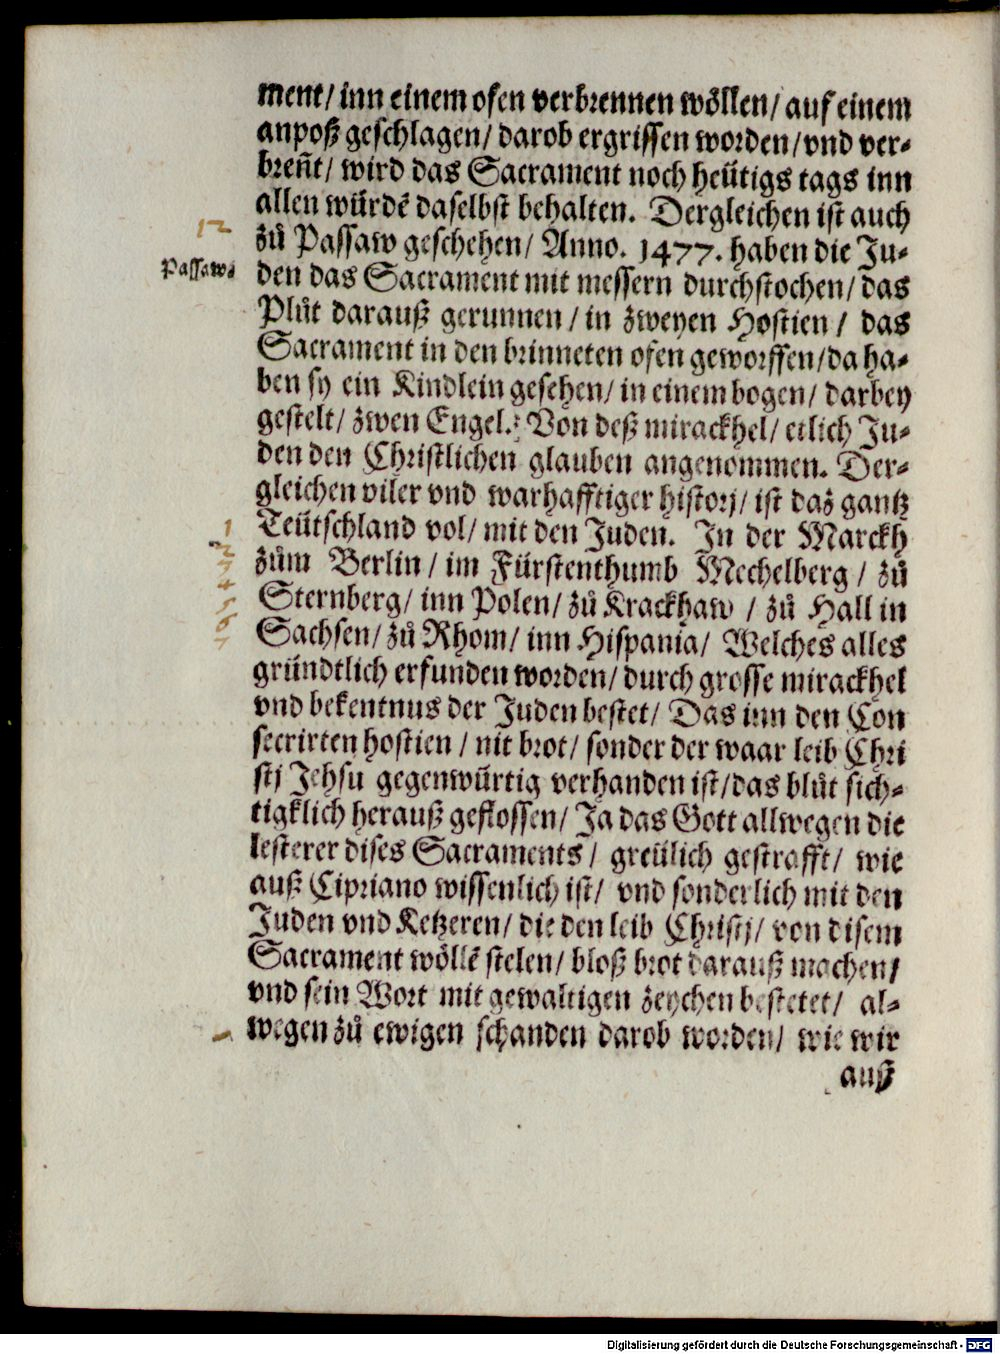 ment/ inn einem ofen verbrennen wöllen/ auf einem
anpoß geschlagen/ darob ergriffen worden/ vnd ver-
breñt/ wird das Sacrament noch heütigs tags inn
allen würdẽ daselbst behalten. Dergleichen ist auch
12
zů Passaw geschehen/ Anno. 1477. haben die Ju-
Passaw.
den das Sacrament mit messern durchstochen/ das
Plůt darauß gerunnen/ in zweyen Hostien/ das
Sacrament in den brinneten ofen geworffen/ da ha-
ben sy ein Kindlein gesehen/ in einem bogen/ darbey
gestelt/ zwen Engel. Von deß mirackhel/ etlich Ju-
den den Christlichen glauben angenommen. Der-
gleichen viler vnd warhafftiger histori/ ist das gantz
1
Teütschland vol/ mit den Juden. In der Marckh
2
3
zům Berlin/ im Fürstenthumb Mechelberg/ zů
4
5
Sternberg/ inn Polen/ zů Krackhaw/ zů Hall in
6
7
Sachsen/ zů Rhom/ inn Hispania/ Welches alles
gründtlich erfunden worden/ durch grosse mirackhel
vnd bekentnus der Juden bestet/ Das inn den Con
secrirten hostien/ nit brot/ sonder der waar leib Chri
stj Jehsu gegenwürtig verhanden ist/ das blůt sich-
tigklich herauß geflossen/ Ja das Gott allwegen die
lesterer dises Sacraments/ greülich gestrafft/ wie
auß Cipriano wissenlich ist/ vnd sonderlich mit den
Juden vnd Ketzeren/ die den leib Christj/ von disem
Sacrament wöllẽ stelen/ bloß brot darauß machen/
vnd sein Wort mit gewaltigen zeychen bestetet/ al-
wegen zů ewigen schanden darob worden/ wie wir
auß
Digitalisierung gefördert durch die Deutsche Forschungsgemeinschaft - DFG